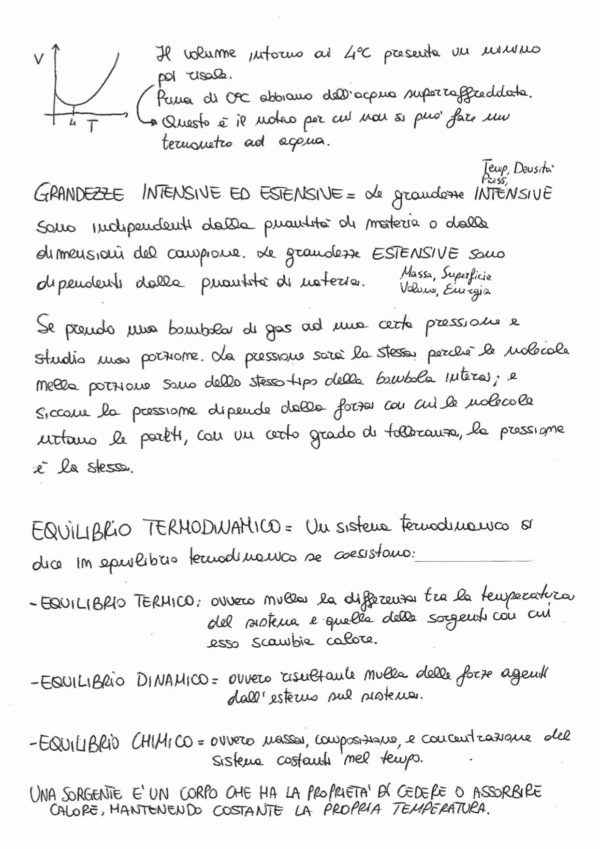 V
Il volume intorno ai 4°C presenta un minimo
poi risale.
Prima di 0°C abbiamo dell'acqua superraffreddata.
Questo è il motivo per cui non si può fare un
termometro ad acqua.
4 T
Temp, Densità
Press,
GRANDEZZE INTENSIVE ED ESTENSIVE = Le grandezze INTENSIVE
sono indipendenti dalla quantità di materia o dalla
dimensioni del campione. Le grandezze ESTENSIVE sono
dipendenti dalla quantità di materia.
Massa, Superficie
Volume, Energia
Se prendo una bombola di gas ad una certa pressione e
studio una porzione. La pressione sarà la stessa perché le molecole
nella porzione sono dello stesso tipo della bombola intera; e
siccome la pressione dipende dalla forza con cui le molecole
urtano le pareti, con un certo grado di tolleranza, la pressione
è la stessa.
EQUILIBRIO TERMODINAMICO = Un sistema termodinamico si
dice in equilibrio termodinamico se coesistono:
- EQUILIBRIO TERMICO: ovvero nulla la differenza tra la temperatura
del sistema e quella delle sorgenti con cui
esso scambia calore.
- EQUILIBRIO DINAMICO = ovvero risultante nulla delle forze agenti
dall'esterno sul sistema.
- EQUILIBRIO CHIMICO = ovvero massa, composizione, e concentrazione del
sistema costanti nel tempo.
UNA SORGENTE E' UN CORPO CHE HA LA PROPRIETA' DI CEDERE O ASSORBIRE
CALORE, MANTENENDO COSTANTE LA PROPRIA TEMPERATURA.